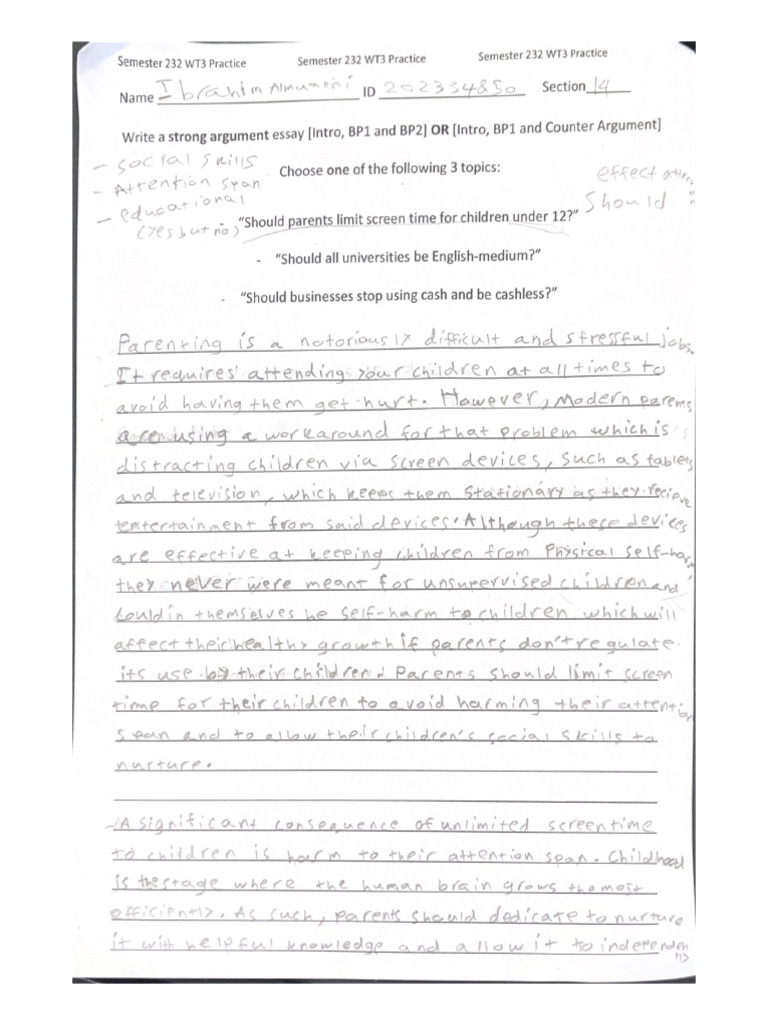 Semester 232 WT3 Practice Semester 232 WT3 Practice Semester 232 WT3 Practice
Name Ibrahim Almuanini ID 202334850 Section 14
Write a strong argument essay [Intro, BP1 and BP2] OR [Intro, BP1 and Counter Argument]
- social skills
Choose one of the following 3 topics:
- Attention span
effect
- educational
should
(Yes but no)
- "Should parents limit screen time for children under 12?"
- "Should all universities be English-medium?"
- "Should businesses stop using cash and be cashless?"
Parenting is a notoriously difficult and stressful jobs.
It requires attending your children at all times to
avoid having them get hurt. However, Modern parents
are using a workaround for that problem which is
distracting children via screen devices, such as tablets
and television, which keeps them stationary as they recieve
entertainment from said devices. Although these devices
are effective at keeping children from Physical self-harm
they never were meant for unsupervised children and
could in themselves be self-harm to children which will
affect their healthy growth if parents don't regulate
its use by their children. Parents should limit screen
time for their children to avoid harming their attention
span and to allow their children's social skills to
nurture.
A significant consequence of unlimited screen time
to children is harm to their attention span. Childhood
is the stage where the human brain grows the most
efficiently. As such, parents should dedicate to nurture
it with helpful knowledge and allow it to independently